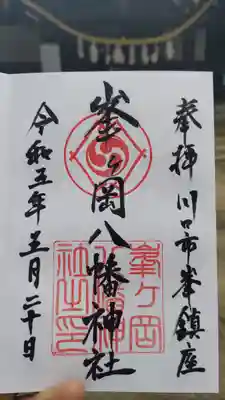 奉拝 川口市峯鎮座
峯ヶ岡八幡神社
峯ヶ岡
社之印
令和五年三月二十日